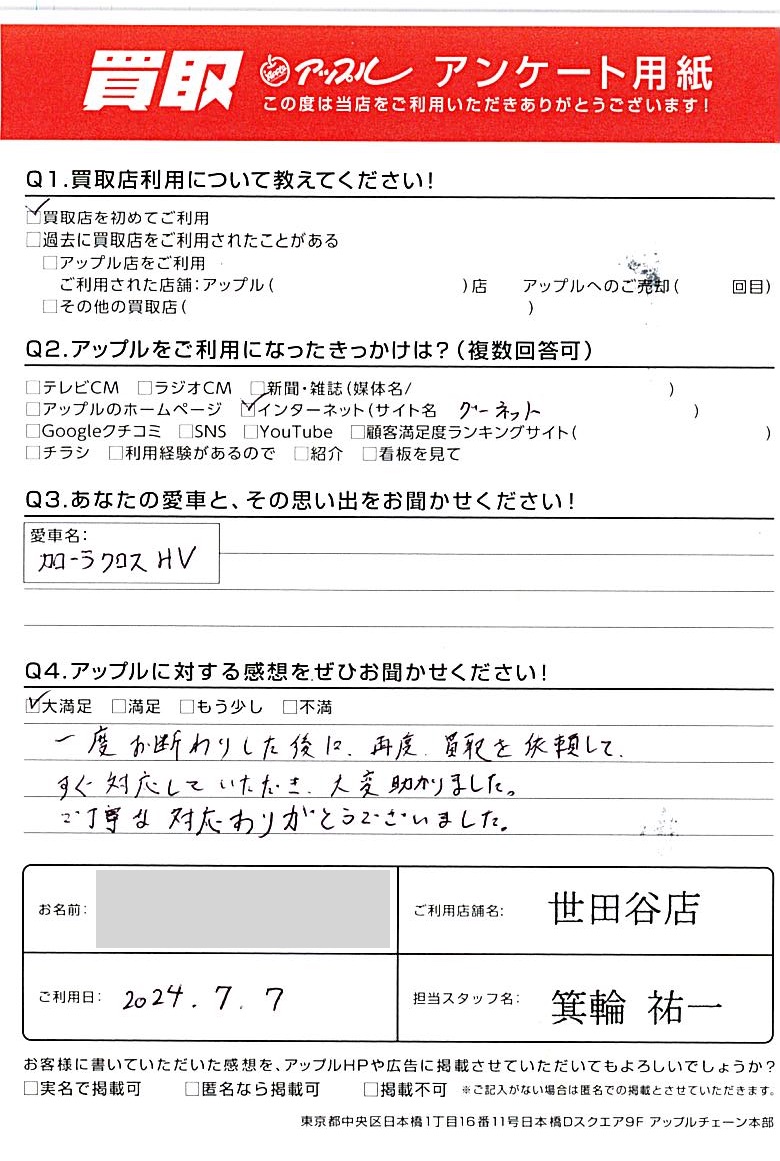 買取 アップル アンケート用紙
この度は当店をご利用いただきありがとうございます!
Q1.買取店利用について教えてください!
☑買取店を初めてご利用
□過去に買取店をご利用されたことがある
□アップル店をご利用
ご利用された店舗:アップル( )店 アップルへのご売却( 回目)
□その他の買取店( )
Q2.アップルをご利用になったきっかけは?(複数回答可)
□テレビCM □ラジオCM □新聞・雑誌(媒体名/ )
□アップルのホームページ ☑インターネット(サイト名 グーネット )
□Googleクチコミ □SNS □YouTube □顧客満足度ランキングサイト( )
□チラシ □利用経験があるので □紹介 □看板を見て
Q3.あなたの愛車と、その思い出をお聞かせください!
愛車名:
カローラクロス HV
Q4.アップルに対する感想をぜひお聞かせください!
☑大満足 □満足 □もう少し □不満
一度お断わりした後に、再度、買取を依頼して、
すぐ対応していただき、大変助かりました。
ご丁寧な対応ありがとうございました。
お名前: ご利用店舗名: 世田谷店
ご利用日: 2024.7.7 担当スタッフ名: 箕輪 祐一
お客様に書いていただいた感想を、アップルHPや広告に掲載させていただいてもよろしいでしょうか?
□実名で掲載可 □匿名なら掲載可 □掲載不可 ※ご記入がない場合は匿名での掲載とさせていただきます。
東京都中央区日本橋1丁目16番11号日本橋Dスクエア9F アップルチェーン本部